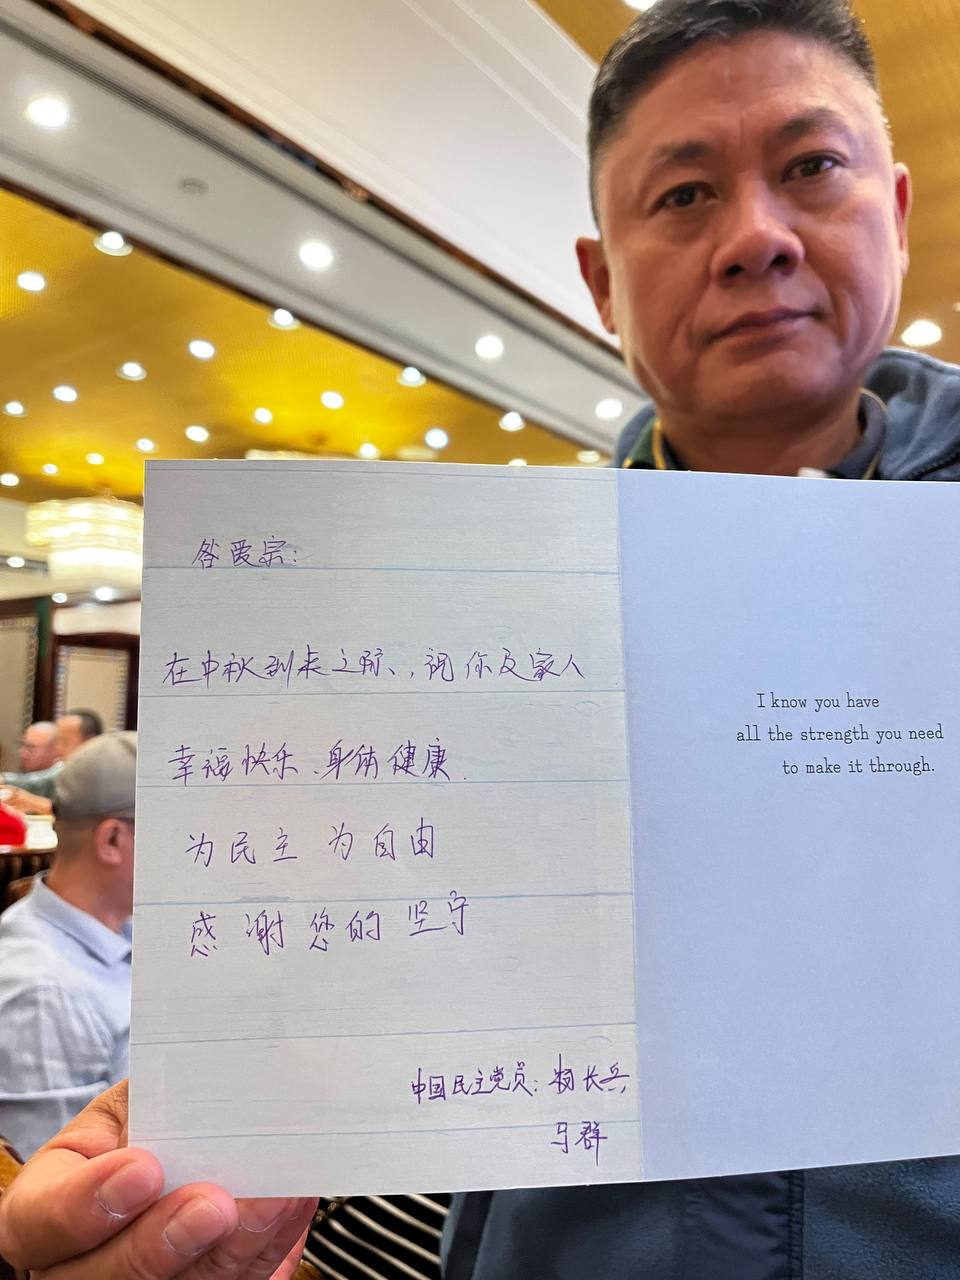 昝爱宗:
在中秋到来之际、,祝你及家人
幸福快乐、身体健康.
为民主 为自由
感谢您的坚守
中国民主党员: 杨长兵
马群
I know you have
all the strength you need
to make it through.